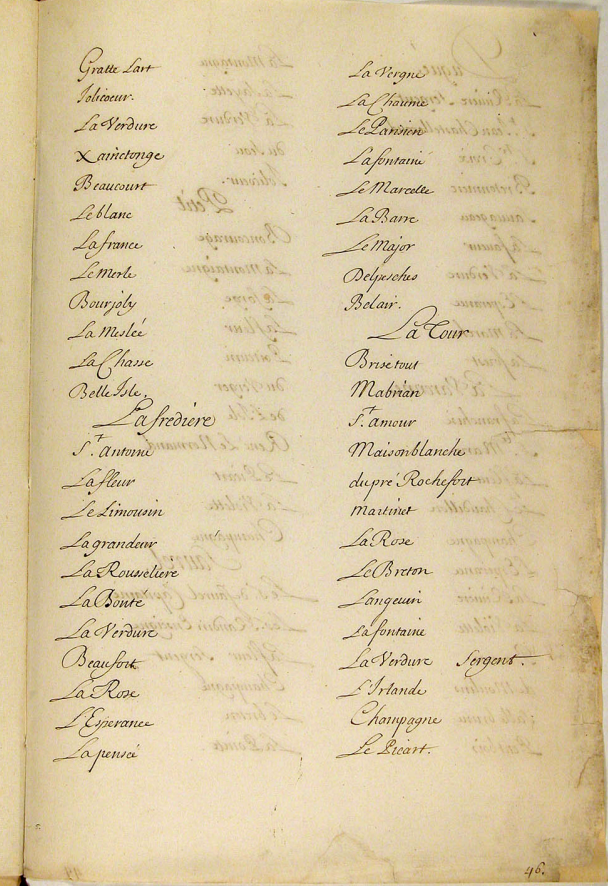 Gratte Lart
Jolicoeur.
La Verdure
Xainctonge
Beaucourt
Le blanc
La france
Le Merle
Bourjoly
La Meslée
La Chasse
Belle Isle.
La frediere
St. Antoine
La fleur
Le Limousin
La grandeur
La Rousseliere
La Bonté
La Verdure
Beaufort
La Rose
L'Esperance
La pensée
La Vergne
La Chaume
Le Parisien
La fontaine
Le Marcelle
La Barre
Le Major
Delpesches
Belair.
La Tour
Brise tout
Mabrian
St. amour
Maisonblanche
du pré Rochefort
Martinet
La Rose
Le Breton
Langevin
La fontaine
La Verdure Sergent.
L'Irlande
Champagne
Le Picart.
46.